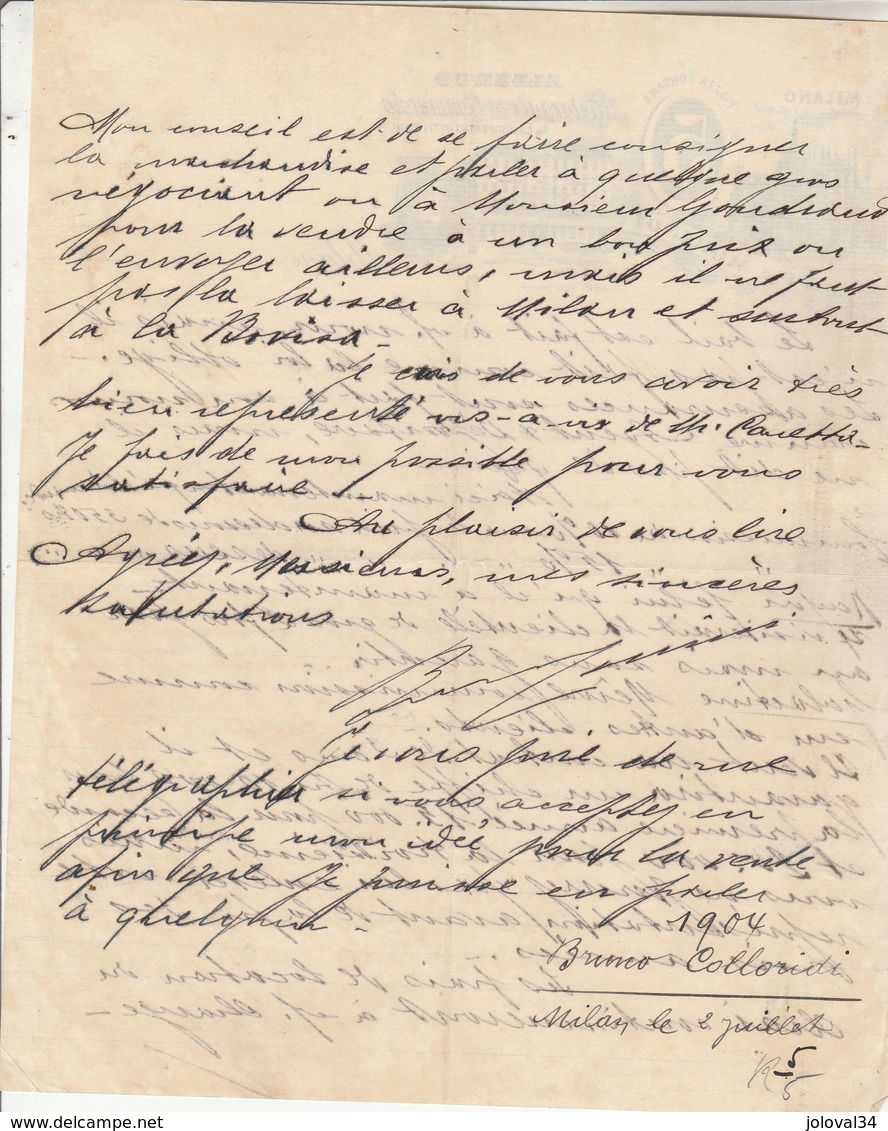 Mon conseil est de se faire consigner
la marchandise et parler à quelque gros
négociant ou à Monsieur Gondrand
pour la vendre à un bon prix ou
l'envoyer ailleurs, mais il ne faut
pas la laisser à Milan et surtout
à la Bovisa -
Je crois de vous avoir très
bien représenté vis-à-vis de Mr.
Je fais de mon possible pour vous
satisfaire -
Au plaisir de vous lire
Agréez, Messieurs, mes sincères
salutations
Je vous prie de me
télégraphier si vous acceptez en
principe mon idée pour la vente
afin que je puisse en parler
à quelqu'un -
1904
Bruno Colloridi
Milan, le 2 juillet
R 5
5
joloval34